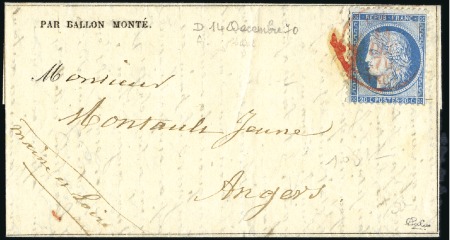 PAR BALLON MONTÉ.
D 14 Décembre 70
REPUB. FRANC.
20 C. POSTES 20 C.
Monsieur
Montault Jeune
Angers
Maine et Loire